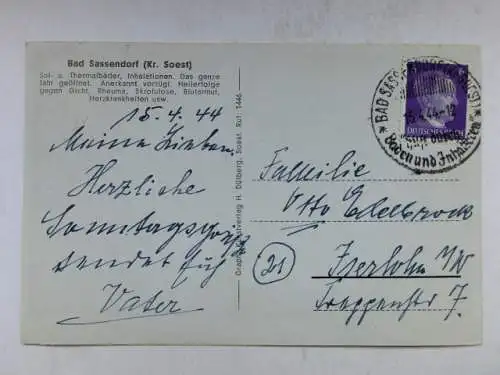 Bad Sassendorf (Kr. Soest)
Sol- u. Thermalbäder, Inhalationen. Das ganze
Jahr geöffnet. Anerkannt vorzügl. Heilerfolge
gegen Gicht, Rheuma, Skrofulose, Blutarmut,
Herzkrankheiten usw.
15.4.44
Meine Lieben.
Herzliche
Sonntagsgrüße
sendet Euch
Vater
H. Dülberg, Soest, Ruf: 1446
BAD SASSENDORF (KR. SOEST)
15.4.44-12
Baden und Inhalieren
DEUTSCHES
Familie
Otto Edelbrock
21
Iserlohn i/W
7.